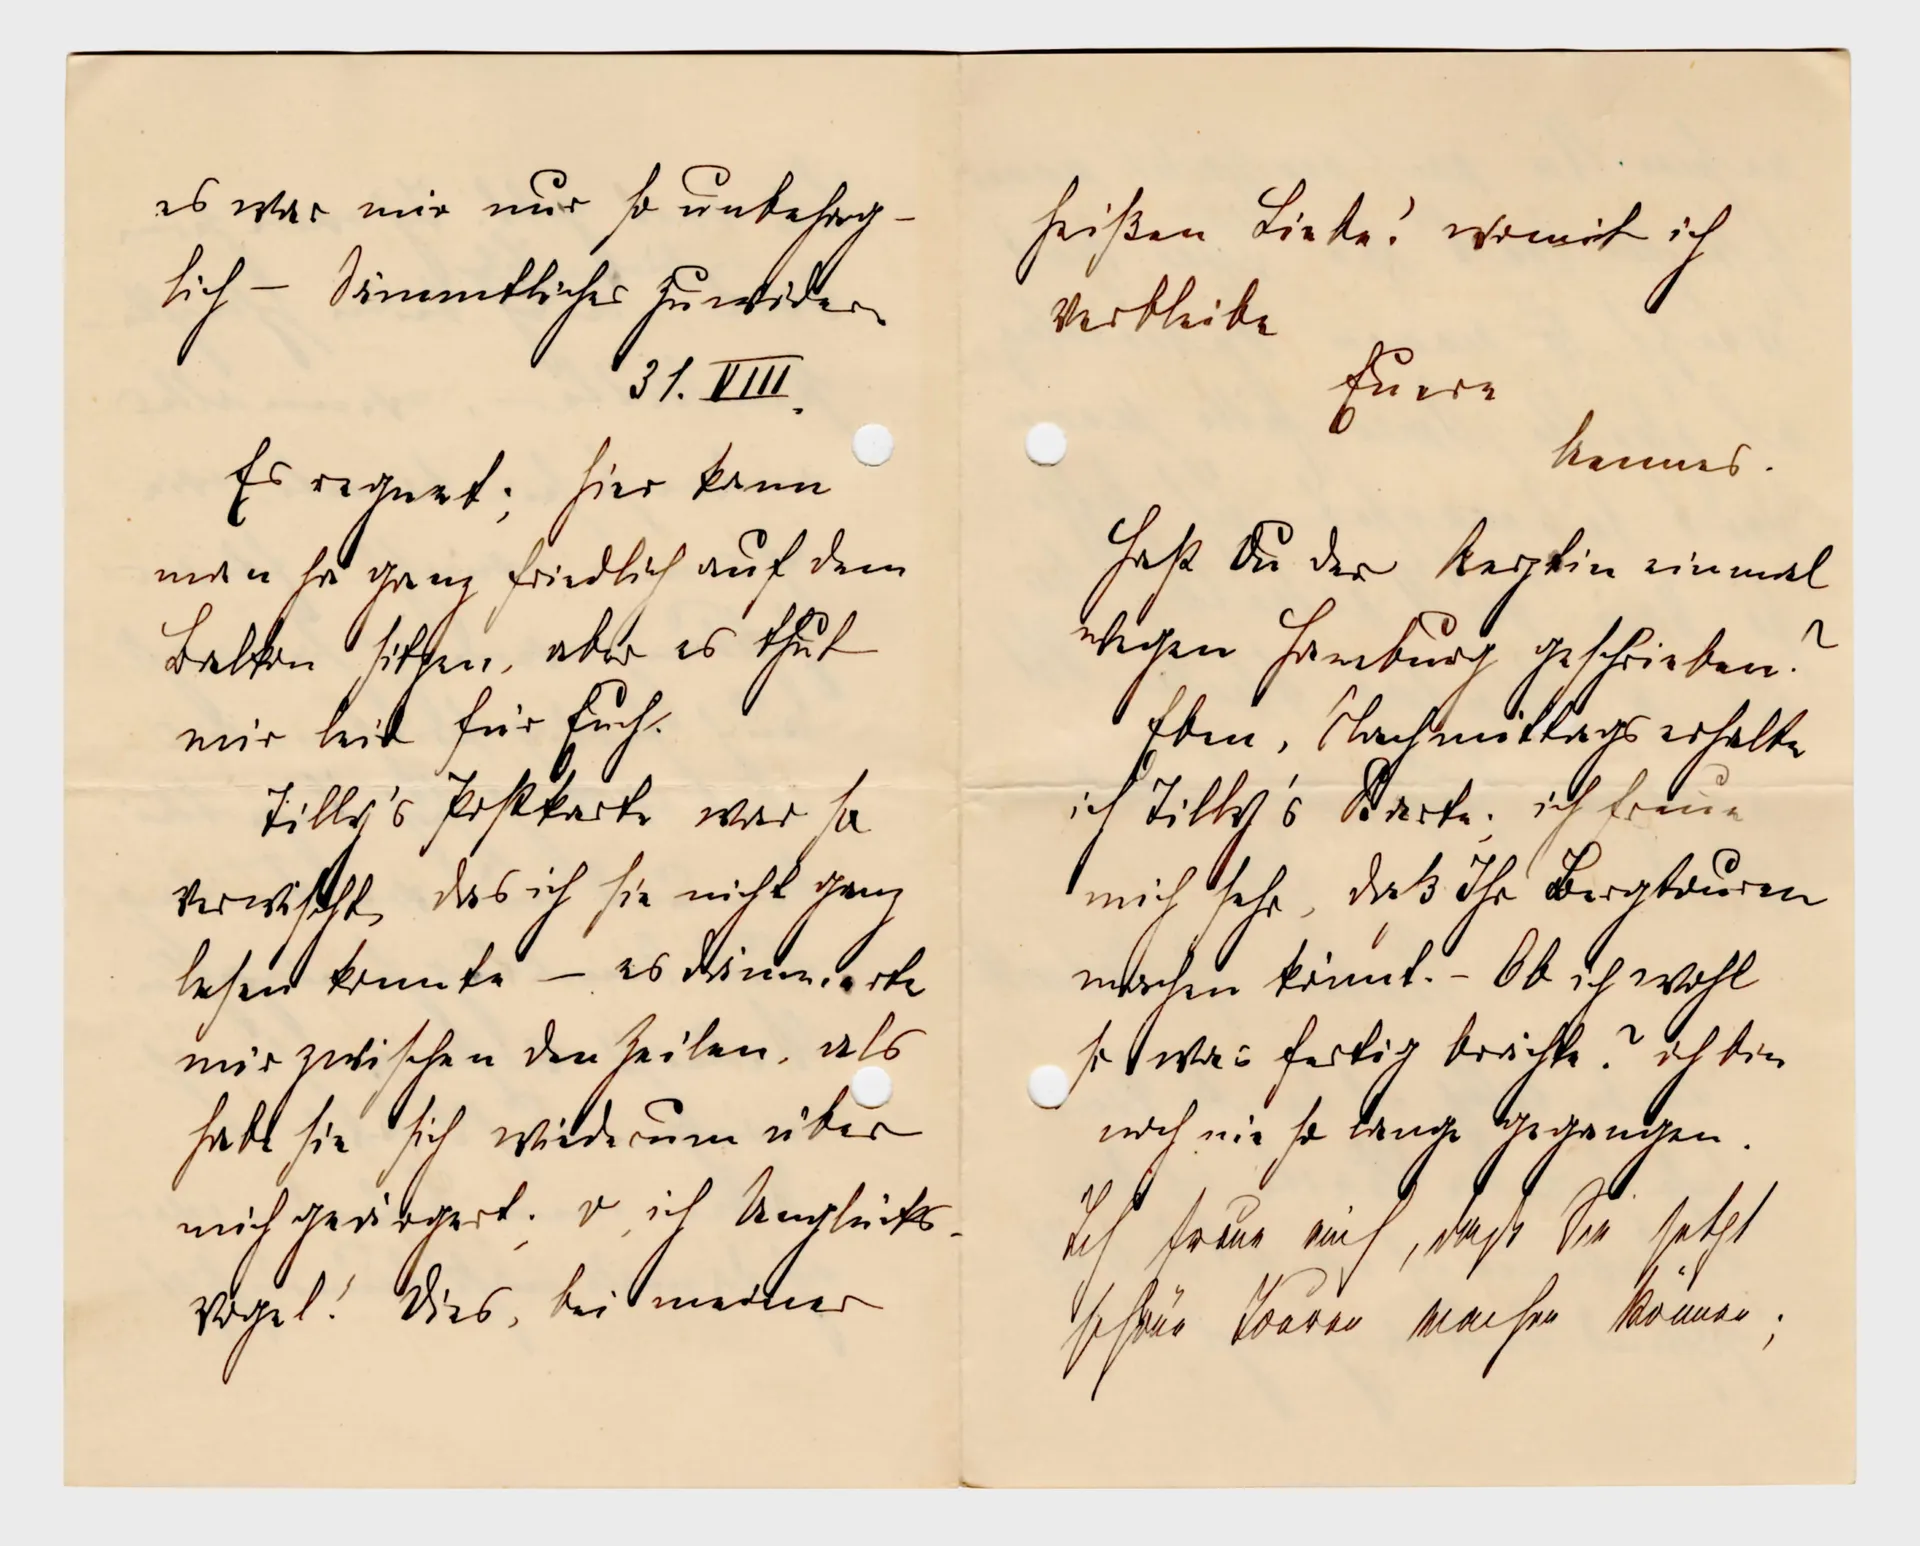 es war mir nur so unbehag-
lich – Sämmtliches zuwider.
31. VIII.
Es regnet; hier kann
man ja ganz friedlich auf dem
Balkon sitzen, aber es thut
mir leid für Euch.
Tilly's Postkarte war so
verwischt, das ich sie nicht ganz
lesen konnte – es dämmerte
mir zwischen den Zeilen, als
habe sie sich wiederum über
mich geärgert; o, ich Unglücks-
vogel! Dies, bei meiner
heißen Liebe! womit ich
verbleibe
Euere
Aennes.
Hast Du der Aerztin einmal
wegen Hamburg geschrieben?
Eben, Nachmittags erhalte
ich Tilly's Karte; ich freue
mich sehr, daß Ihr Bergtouren
machen könnt. – Ob ich wohl
so was fertig brächte? ich bin
noch nie so lange gegangen.
Ich freue mich, dass Sie jetzt
schöne Touren machen können;